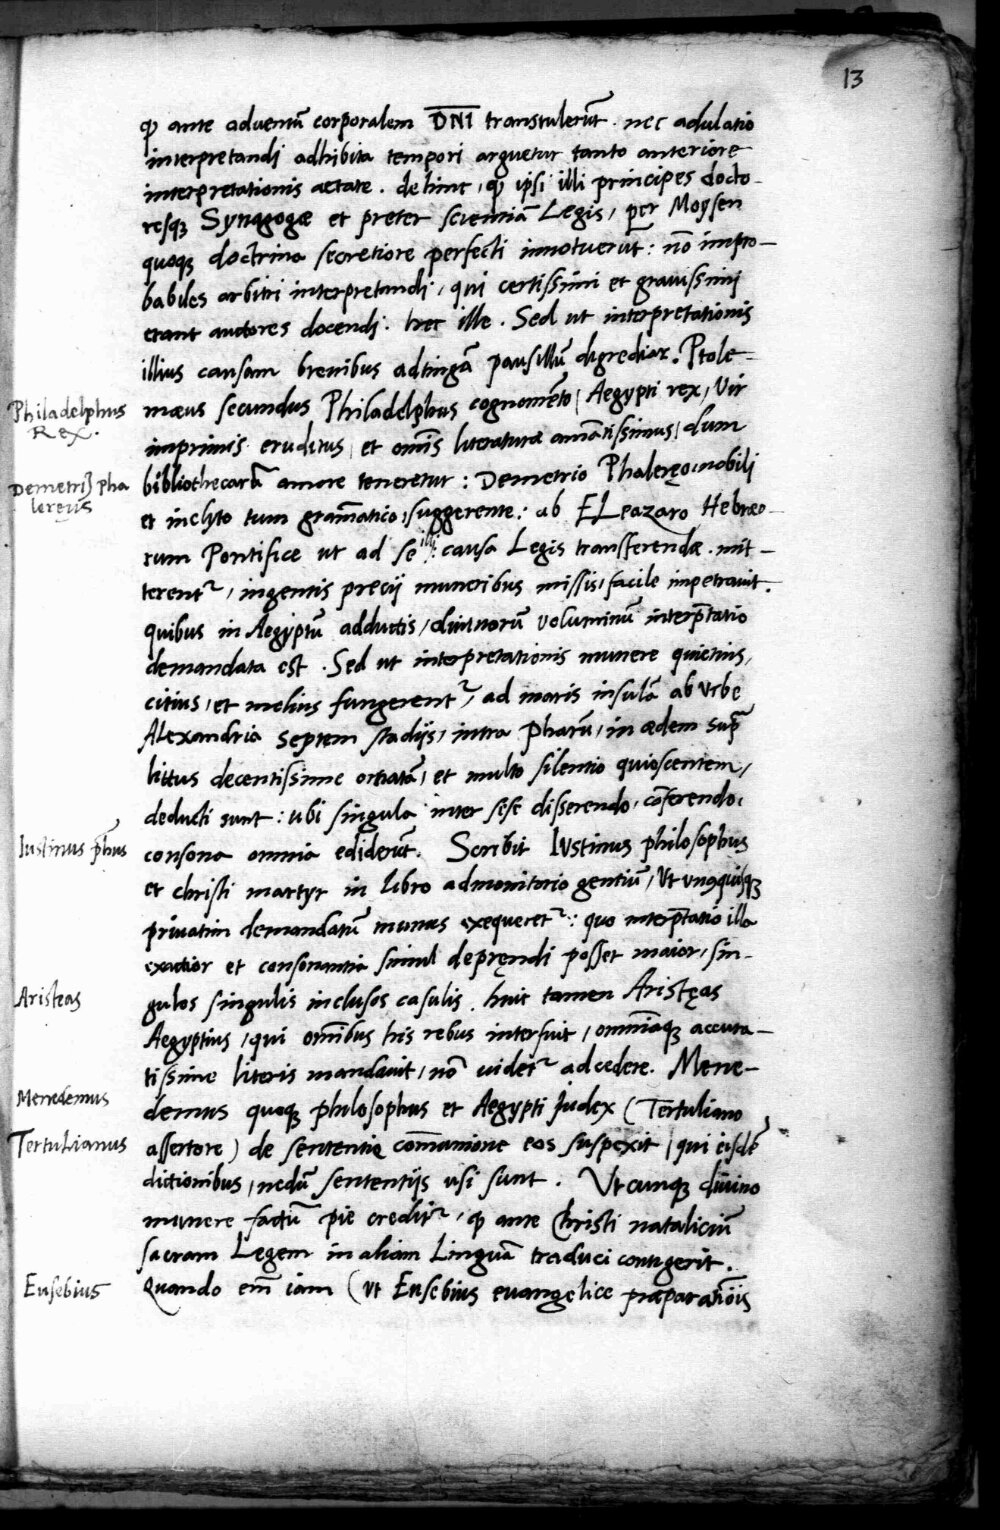 13
ꝙ ante aduentū corporalem DN̄I transtulerūt. nec adulatio
interpretandj adhibita tempori arguetur tanto anteriore
interpretationis aetate. dehinc, ꝙ ipsi illi principes docto-
resqꝫ Synagogæ et preter scientiā Legis, per Moysen
quoqꝫ doctrina secretiore perfecti innotuerūt: nō impro-
babiles arbitri interpretandj, qui certissimi et grauissimj
erant auctores docendj. hec ille. Sed ut interpretationis
illius causam breuibus adtingā pausillū digrediar. Ptole-
Philadelphus Rex.
mæus secundus Philadelphus cognomēto, Aegypti rex, Vir
imprimis eruditus, et om̄is literaturæ amātissimus, dum
Demetriꝰ phalereus
bibliothecarū amore teneretur: Demetrio Phaleręo, nobili
et inclyto tum gram̄atico, suggerente: ab ELeazaro Hebræo-
rum Pontifice ut ad se illi causa Legis transferendæ mit-
terentʳ, ingentis precij muneribus missis, facile impetrauit.
quibus in Aegyptū adductis, diuinorū voluminū interp̄tatio
demandata est. Sed ut interpretationis munere quietius,
citius, et melius fungerentʳ, ad maris insulā ab vrbe
Alexandria septem stadijs, intra Pharū, in ædem sup̄
littus decentissime ornatā, et multo silentio quiescentem,
deducti sunt: ubi singula inter sese disserendo, cōferendo,
Iustinus ph̄us
consona omnia ediderūt. Scribit Iustinus philosophus
et christi martyr in libro admonitorio gentiū, Vt vnꝰquisqꝫ
priuatim demandatū munus exequeretʳ: quo interp̄tatio illa
exactior et consonantia simul depręndi posset maior, sin-
Aristeas
gulos singulis inclusos casulis. huic tamen Aristęas
Aegyptius, qui om̄ibus his rebus interfuit, omniaqꝫ accura-
tissime literis mandauit, nō uidetʳ adcedere. Mene-
Menedemus
demus quoqꝫ philosophus et Aegypti Iudex (Tertuliano
Tertulianus
assertore) de sententiæ com̄unione eos suspexit, qui eisdē
dictionibus, nedū sententijs usi sunt. Vtcunqꝫ diuino
munere factū pie creditʳ, ꝙ ante Christi nataliciū
sacram Legem in aliam Linguā traduci contigerit.
Eusebius
Quando em̄ iam (vt Eusebius euangelice præparatiōis